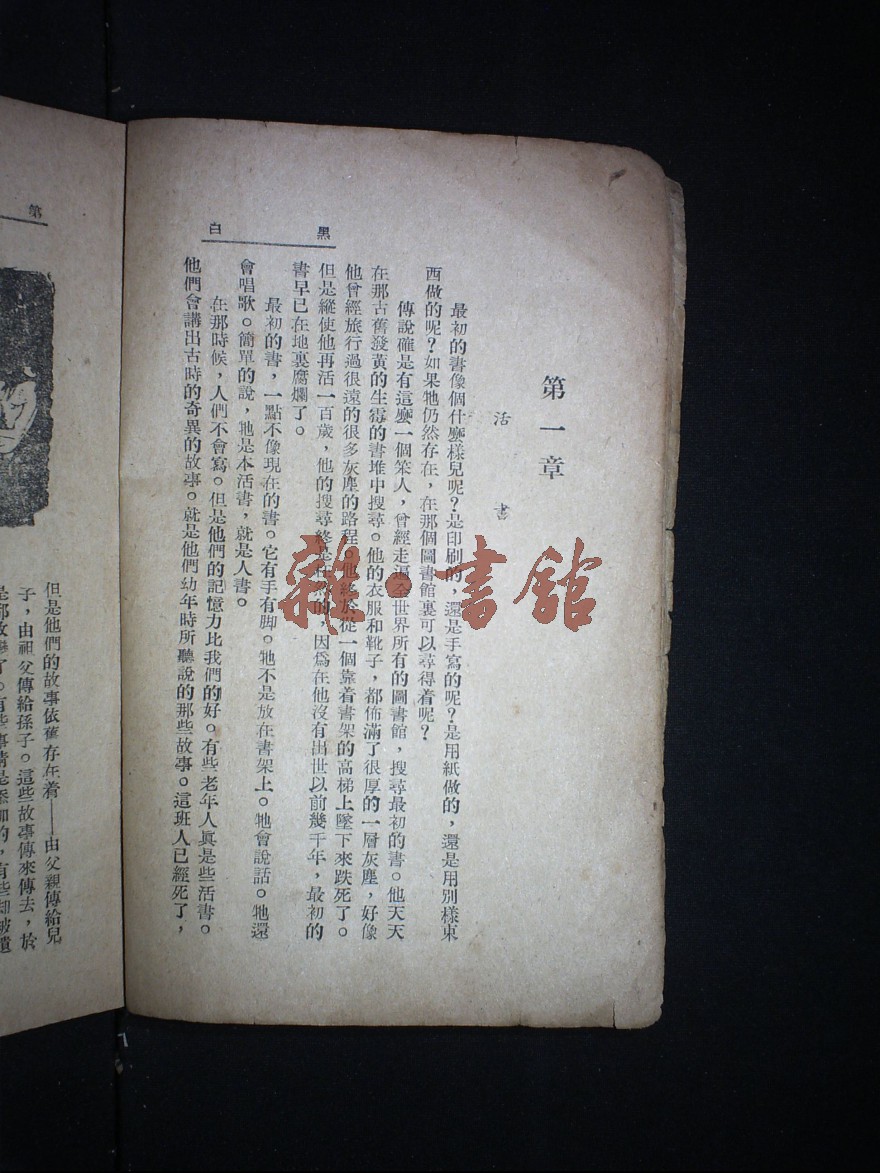 黑白
第一章
活書
最初的書像個什麼樣兒呢？是印刷的，還是手寫的呢？是用紙做的，還是用別樣東
西做的呢？如果牠仍然存在，在那個圖書館裏可以尋得着呢？
傳說確是有這麼一個笨人，曾經走遍全世界所有的圖書館，搜尋最初的書。他天天
在那古舊發黃的生霉的書堆中搜尋。他的衣服和靴子，都佈滿了很厚的一層灰塵，好像
他曾經旅行過很遠的很多灰塵的路程。他終於從一個靠着書架的高梯上墜下來跌死了。
但是縱使他再活一百歲，他的搜尋終是的，因爲在他沒有出世以前幾千年，最初的
書早已在地裏腐爛了。
最初的書，一點不像現在的書。它有手有脚。牠不是放在書架上。牠會說話。牠還
會唱歌。簡單的說，牠是本活書，就是人書。
在那時候，人們不會寫。但是他們的記憶力比我們的好。有些老年人眞是些活書。
他們會講出古時的奇異的故事。就是他們幼年時所聽說的那些故事。這班人已經死了，
第
但是他們的故事依舊存在着——由父親傳給兒
子，由祖父傳給孫子。這些故事傳來傳去，於
雜·書館